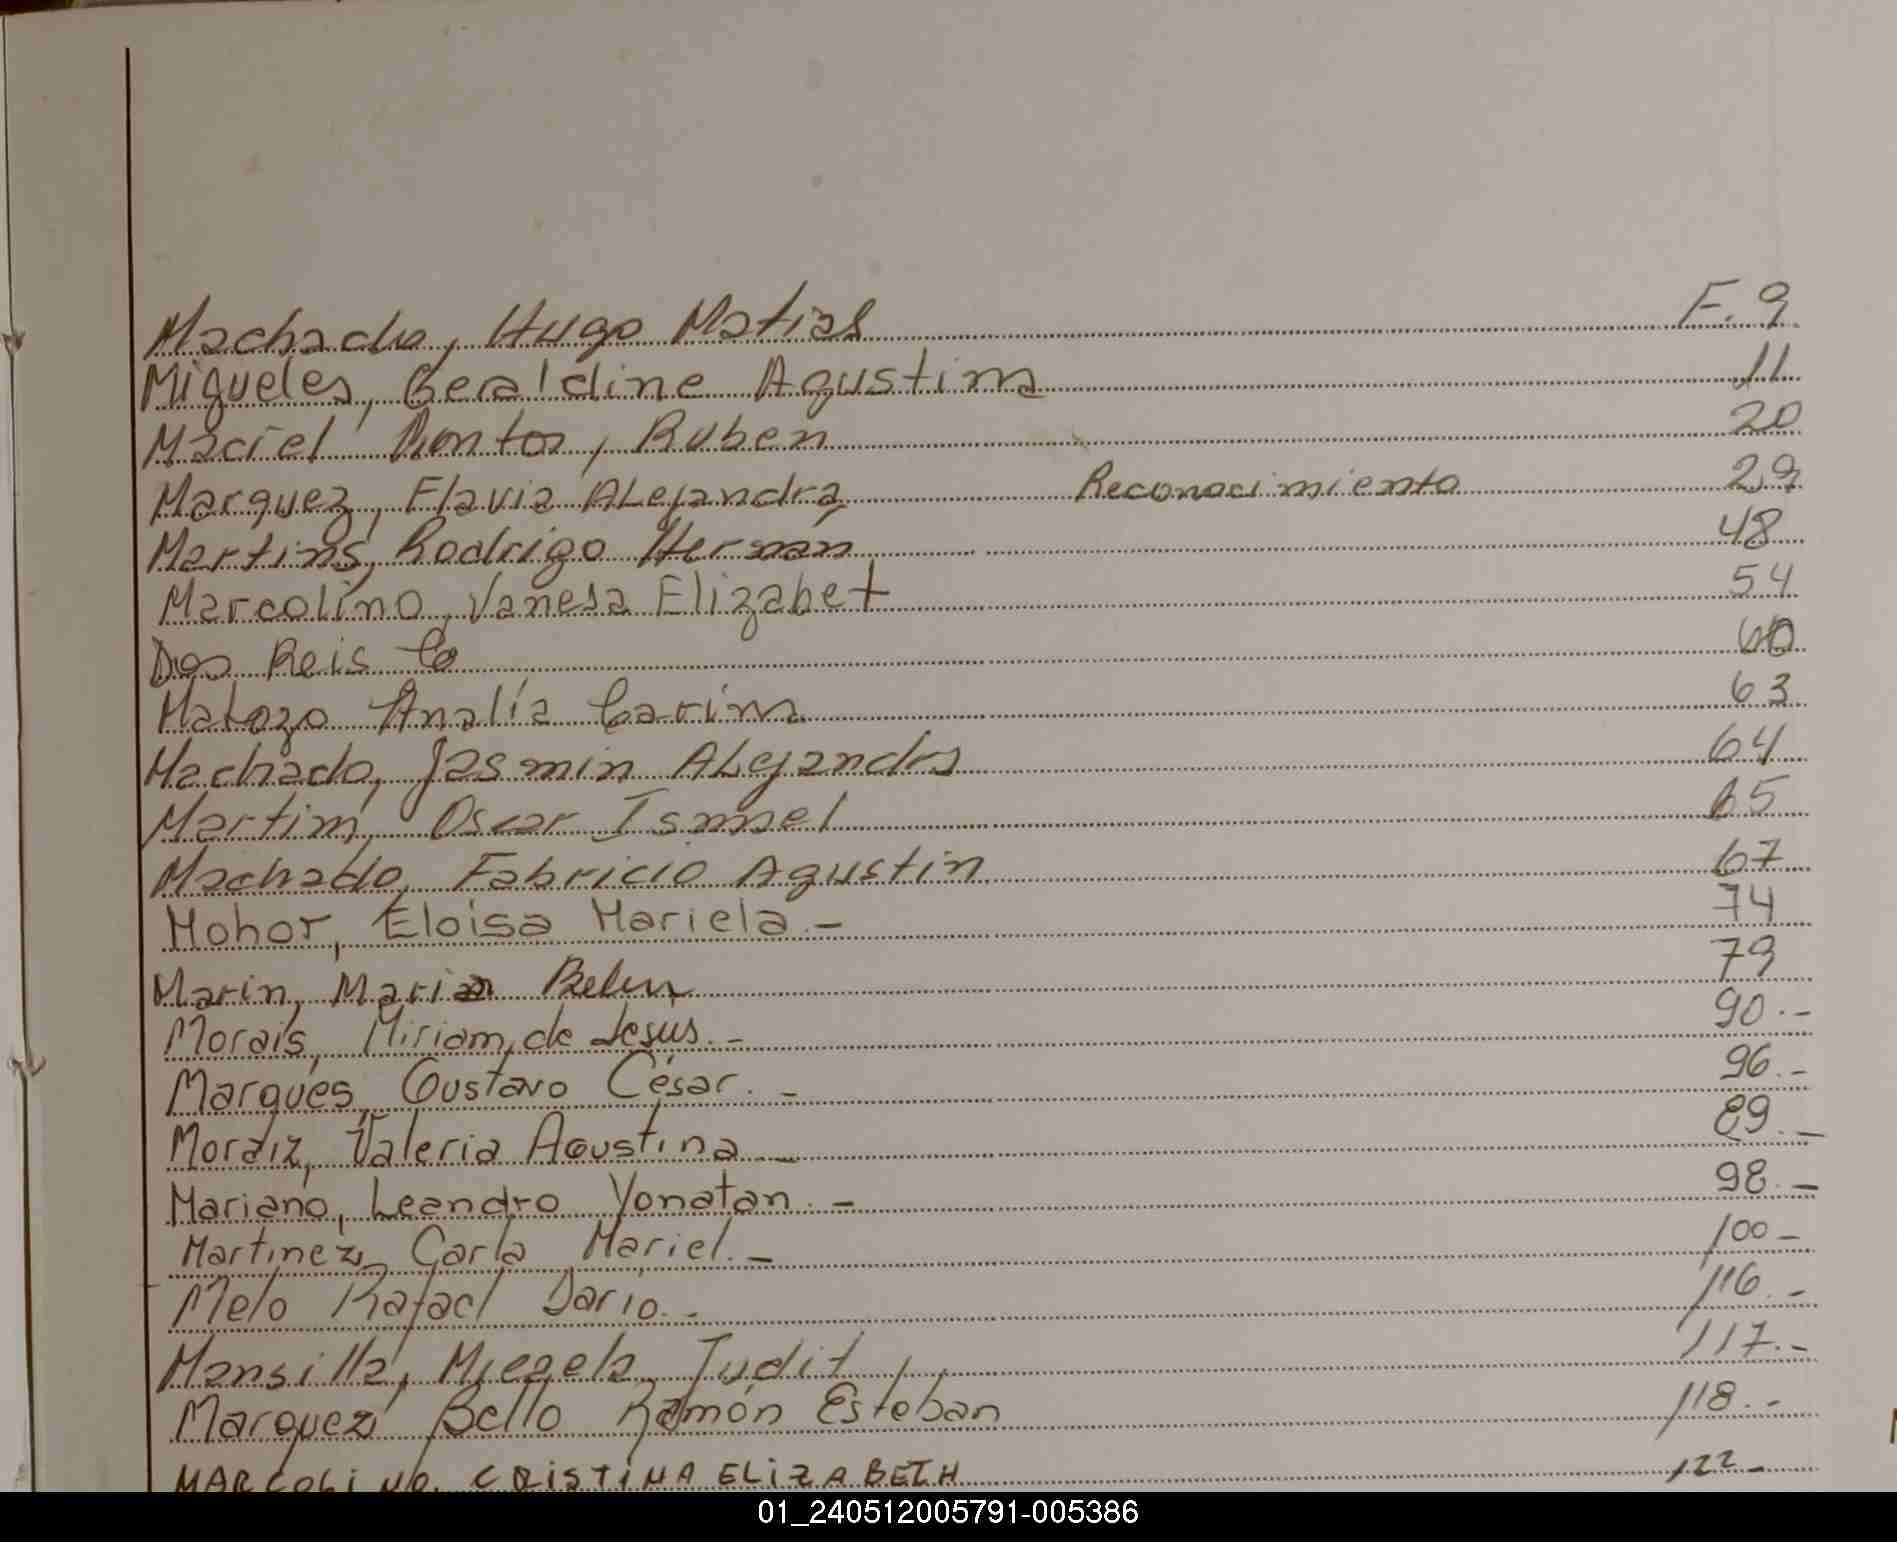 Machado, Hugo Matias F. 9
Migueles, Geraldine Agustina 11
Maciel Ruben 20
Marquez, Flavia Alejandra Reconocimiento 29
Martins, Rodrigo Hernán 48
Marcolino, Vanesa Elizabet 54
Dos Reis Co 60
Matozo Analía Carina 63
Machado, Jasmin Alejandra 64
Martim, Oscar Ismael 65
Machado, Fabricio Agustin 67
Mohor, Eloisa Mariela.- 74
Marin, Maria Belen 79
Morais, Miriam de Jesus.- 90.-
Marques, Gustavo César.- 96.-
Moraiz, Valeria Agustina.- 89.-
Mariano, Leandro Yonatan.- 98.-
Martinez, Carla Mariel.- 100-
Melo Rafael Dario.- 116.-
Mansilla, Judit 117.-
Marquez Bello Ramón Esteban 118.-
MARCOLINO, CRISTINA ELIZABETH 122-
01_240512005791-005386